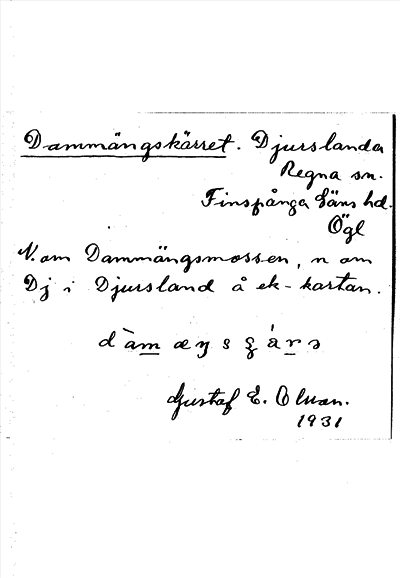 Dammängskärret. Djurslanda
Regna sn.
Finspånga läns hd.
Ögl
N. om Dammängsmossen, n om
Dj i Djursland å ek-kartan.
Gustaf E. Olsson.
1931